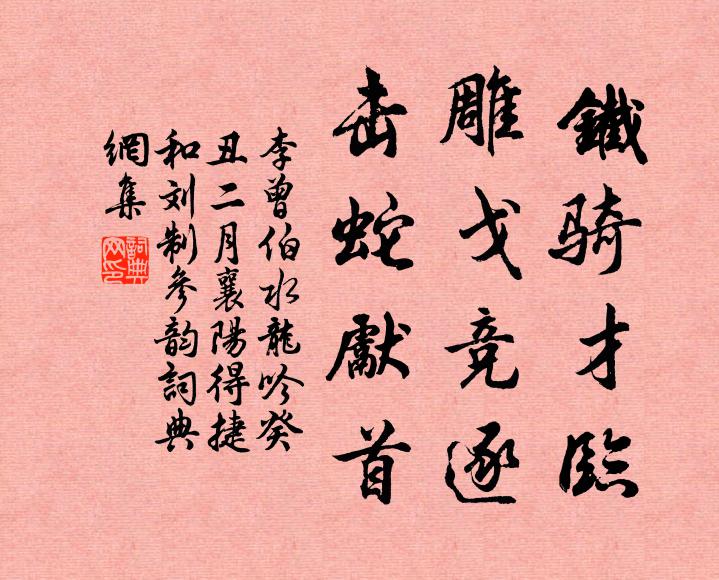 鐵骑才臨
雕戈竞逐
击蛇獻首
李曾伯水龍吟癸
丑二月襄陽得捷
和刘制參韵詞典
網集
詞典網印